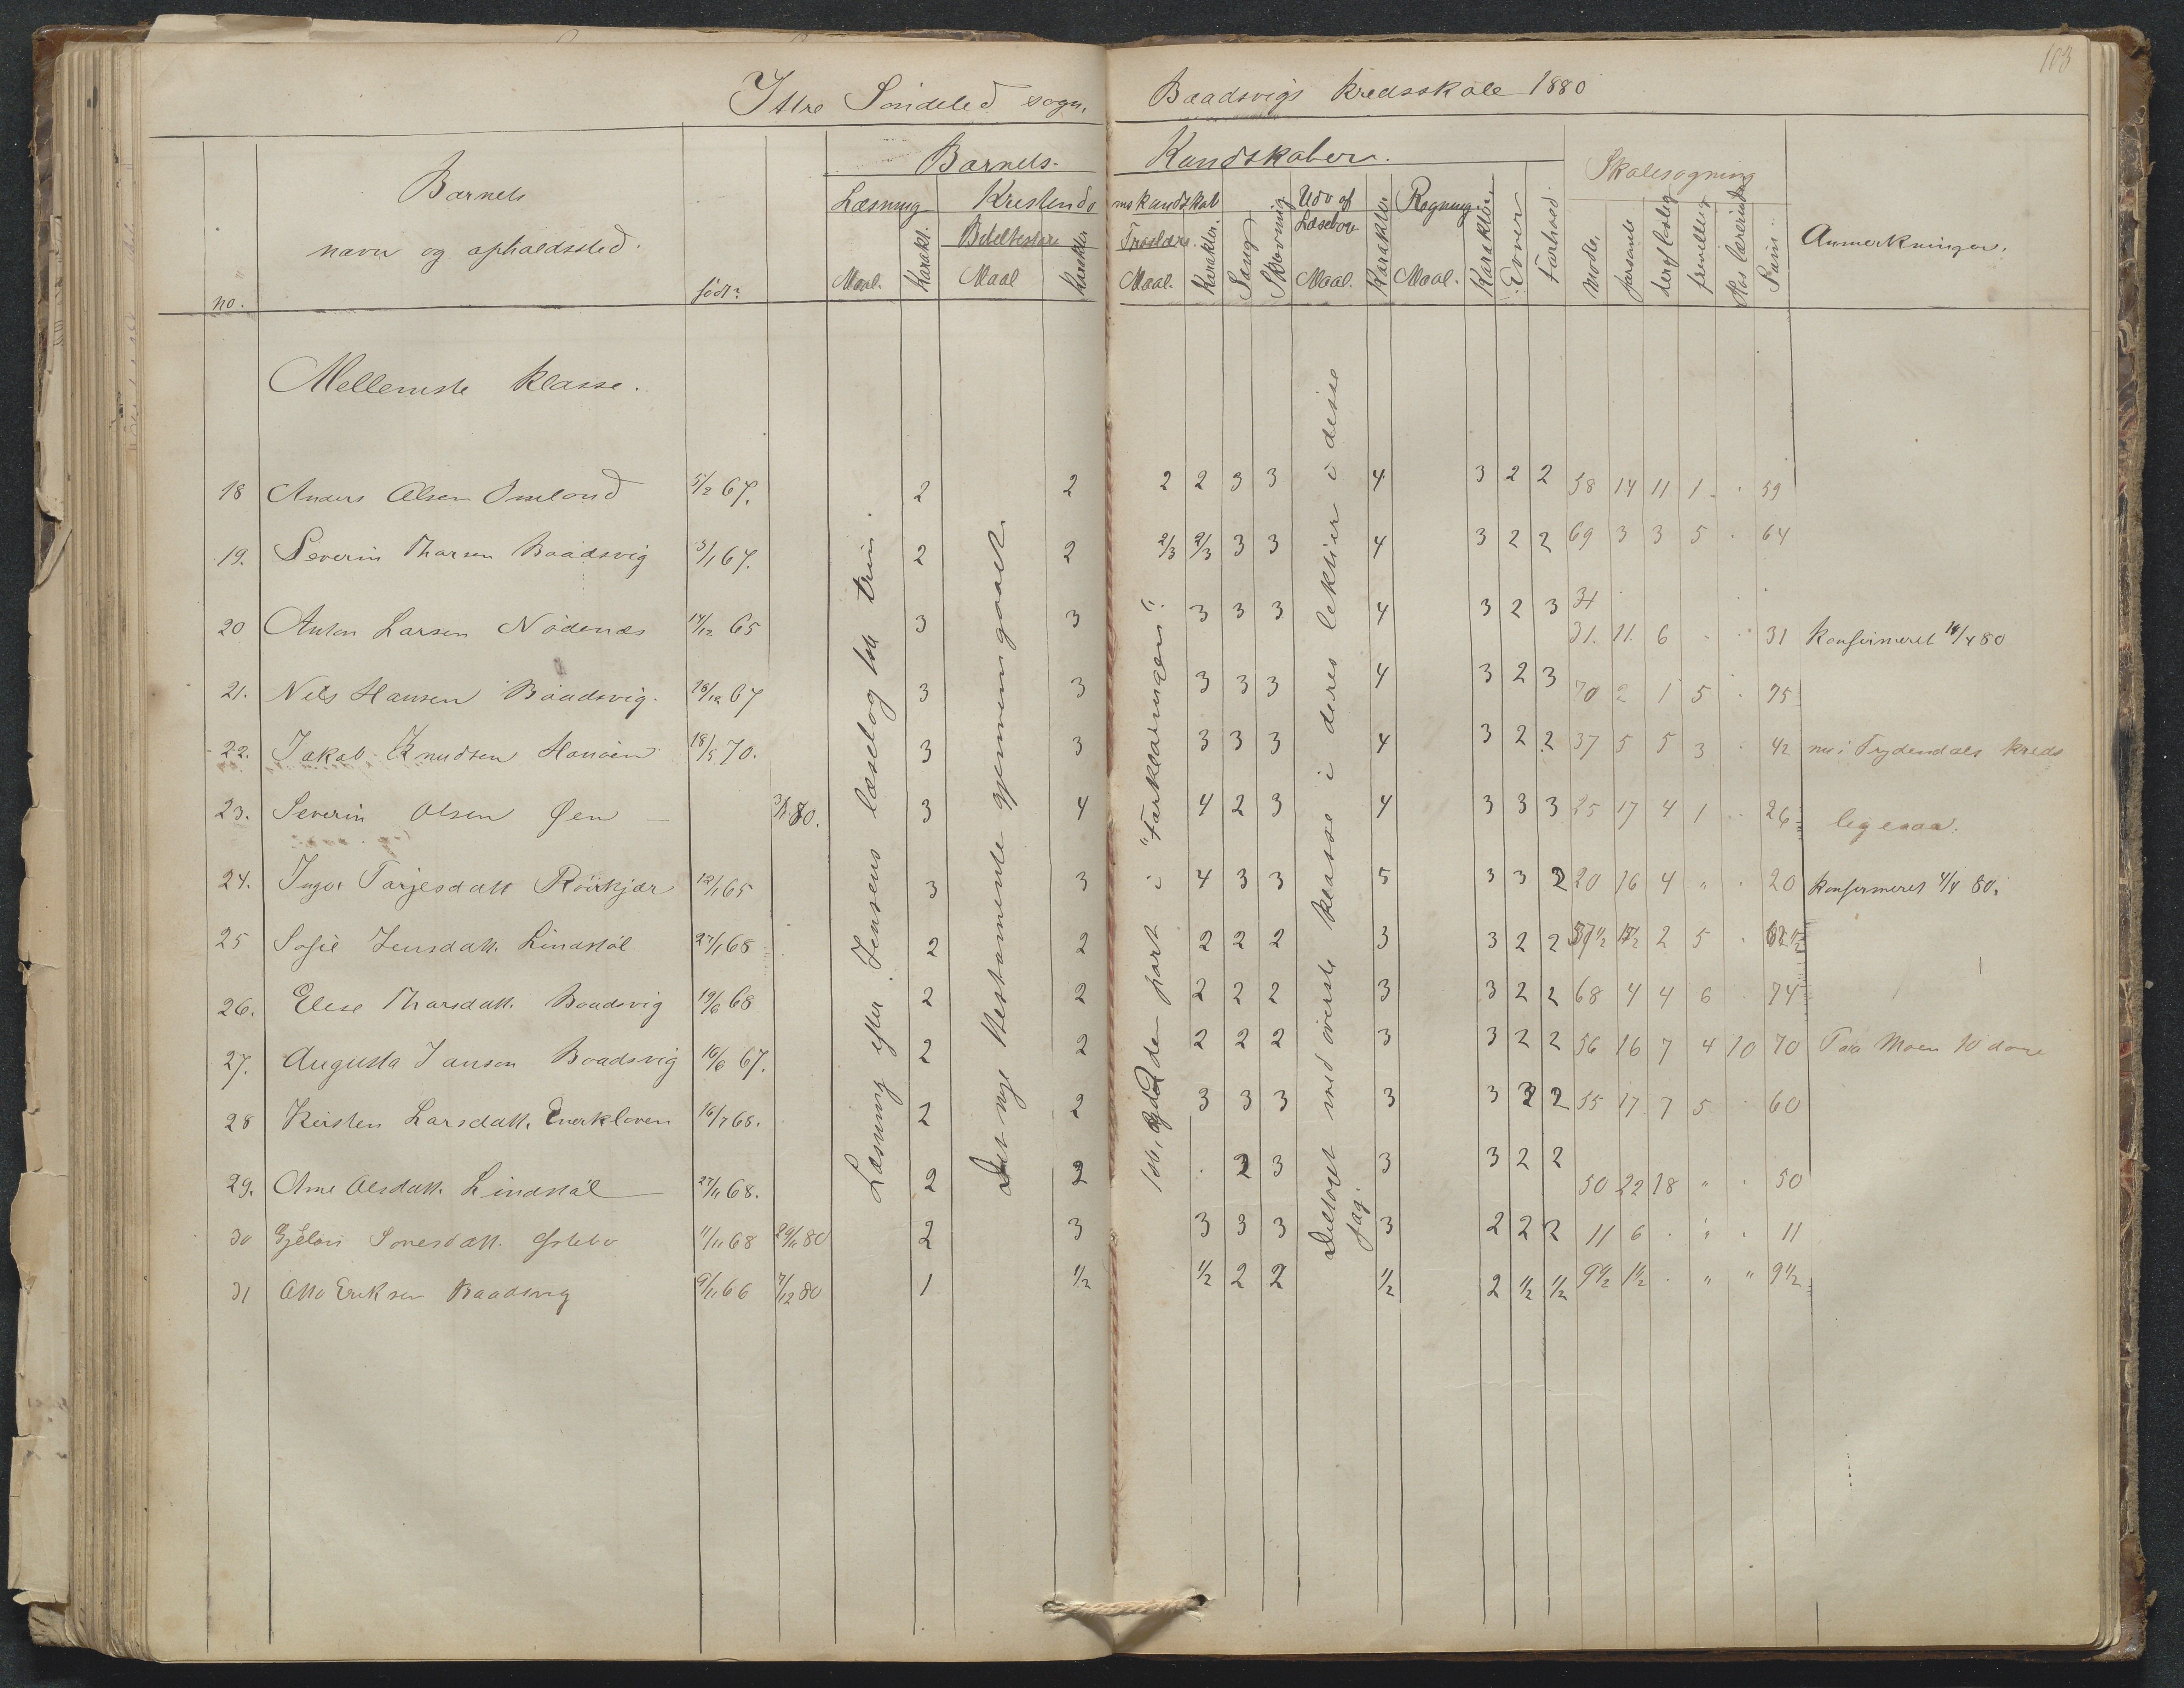 103
Ittre Söndeled sogn. Baadsvigs kredsskole 1880
Barnets Kundskaber. Skolesøgning
Barnets navn og opholdssted. Læsning Kristendomskundskab Udv af Læsebog Regning Anmerkninger.
Troslære
no. født Maal. Karakt. Maal Karakter Maal. Karakter. Sang Skrivning Maal. Karakter Maal. Karakter Evner Forhold. Møder forsømte deraf lovlig frivillig Hos lærerinde Sum.
Mellemste klasse.
Læsning efter Jensens læsebog 1ste trin.
Det nye testamente gjennemgaaet.
1ste, og 2den part i "Forklaringen".
Deltaget med øverste klasse i deres lektier i disse fag.
18 Anders Olsen 5/2 67. 2 2 2 2 3 3 4 3 2 2 58 14 11 1 . 59
19. Severin Thorsen Baadsvig 3/1 67. 2 2 2/3 2/3 3 3 4 3 2 2 69 3 3 5 . 64
20 Anton Larsen Nödenes 14/12 65 3 3 3 3 3 4 3 2 3 31
31. 11. 6 . . 31 konfirmeret 11/4 80
21. Nils Hansen Baadsvig. 16/12 67 3 3 3 3 3 4 3 2 3 70 2 1 5 . 75
22. Jakob Knudsen 18/5 70. 3 3 3 3 3 4 3 2 2 37 5 5 3 . 42 nu i Frydendals kreds
23. Severin Olsen Øen — 80. 3 4 4 2 3 4 3 3 3 25 17 4 1 . 26 legesaa.
24. Inger Tarjesdatt 12/1 65 3 3 4 3 3 5 3 3 2 20 16 4 " . 20 konfirmeret 11/4 80.
25 Sofie Jensdatt. Lindstöl 27/1 68 2 2 2 2 2 3 3 2 2 57 1/2 2 5 . 62 1/2
26. Elise Thorsdatt. Baadsvig 19/6 68 2 2 2 2 2 3 3 2 2 68 4 4 6 . 74
27. Augusta Janson Baadsvig 16/6 67. 2 2 2 2 2 3 3 2 2 56 16 7 4 10 70 Paa Moen 10 dage
28 Kirsten Larsdatt. 16/7 68. 2 2 3 3 3 3 3 2 2 55 17 7 5 . 60
29. Ane Olsdatt. Lindstöl 27/11 68. 2 2 . 3 3 3 3 2 2 50 22 18 " . 50
30 Sonesdatt. 11/11 68 29/11 80 2 3 3 3 3 3 2 2 2 11 6 . " . 11
31 Otto Eriksen Baadsvig 9/11 66 7/12 80 1 1/2 1/2 2 2 1/2 2 1/2 1/2 9 1/2 1 1/2 . " " 9 1/2